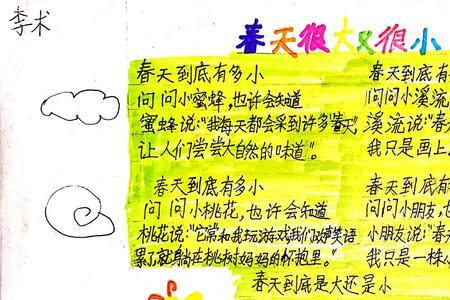 李术
春天很大又很小
春天到底有多小
问问小蜜蜂,也许会知道
蜜蜂说:"我每天都会采到许多春天,
让人们尝尝大自然的味道"。
春天到底有多小
问问小桃花,也许会知道
桃花说:"它常和我玩游戏我们欢声笑语
累了就躺在桃树妈妈的怀抱里。"
春天到底有
问问小溪流
溪流说"春
我只是画上
春天到底有
问问小朋友,也
小朋友说:"春
我只是一株小
春天到底是大还是小